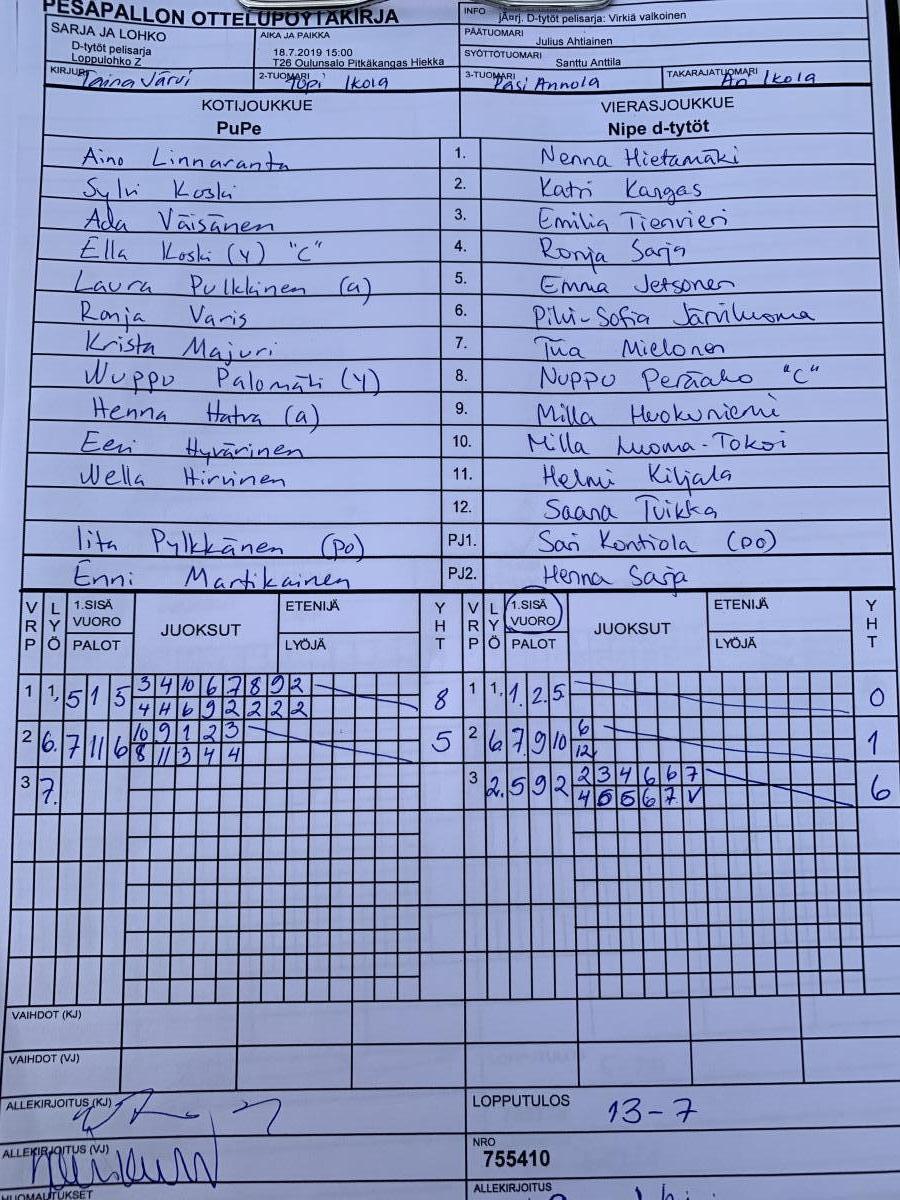 PESÄPALLON OTTELUPÖYTÄKIRJA
INFO jÃ¤rj. D-tytöt pelisarja: Virkiä valkoinen
SARJA JA LOHKO
D-tytöt pelisarja
Loppulohko Z
AIKA JA PAIKKA
18.7.2019 15:00
T26 Oulunsalo Pitkäkangas Hiekka
PÄÄTUOMARI Julius Ahtiainen
SYÖTTÖTUOMARI Santtu Anttila
KIRJURI Taina Järvi
2-TUOMARI Topi Ikola
3-TUOMARI Pasi Annola
TAKARAJATUOMARI Ari Ikola
KOTIJOUKKUE
PuPe
VIERASJOUKKUE
Nipe d-tytöt
Aino Linnaranta 1. Nenna Hietamäki
Sylvi Koski 2. Katri Kangas
Ada Väisänen 3. Emilia Tienvieri
Ella Koski (y) "C" 4. Ronja Sarja
Laura Pulkkinen (a) 5. Emma Jetsonen
Ronja Varis 6. Pilvi-Sofia Järviluoma
Krista Majuri 7. Tiia Mielonen
Nuppu Palomäki (y) 8. Nuppu Peräaho "C"
Henna Hatva (a) 9. Milla Huokuniemi
Eeri Hyvärinen 10. Milla Luoma-Tokoi
Wella Hirvinen 11. Helmi Kiljala
12. Saana Tuikka
Iita Pylkkänen (po) PJ1. Sari Kontiola (po)
Enni Martikainen PJ2. Henna Sarja
VRP LYÖ 1.SISÄ VUORO PALOT JUOKSUT ETENIJÄ LYÖJÄ YHT VRP LYÖ 1.SISÄ VUORO PALOT JUOKSUT ETENIJÄ LYÖJÄ YHT
1 1. 5 1 5 3 4 10 6 7 8 9 2 8 1 1. 1. 2. 5. 0
4 4 6 9 2 2 2 2
2 6. 7 11 6 10 9 1 2 3 5 2 6. 7 9 10 6 1
8 11 3 4 4 12
3 7. 3 2. 5 9 2 2 3 4 6 6 7 6
4 5 5 6 7 V
VAIHDOT (KJ)
VAIHDOT (VJ)
ALLEKIRJOITUS (KJ)
LOPPUTULOS 13-7
ALLEKIRJOITUS (VJ)
NRO
755410
HUOMAUTUKSET
ALLEKIRJOITUS